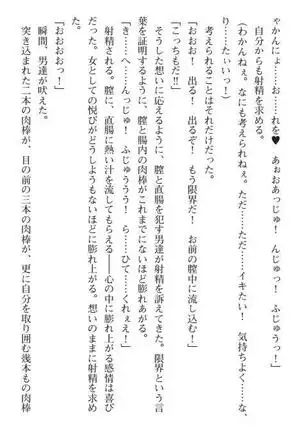 ゃかんにょ……お……れを♥ あぉおあっじゅ！ んじゅっ！ ふじゅうっ！」
自分からも射精を求める。
（わかんねぇ。なにも考えられねぇ。ただ……ただ……イキたい！ 気持ちよく……な、
り……たぃいっ！）
考えられることはそれだけだった。
「おお！ 出る！ 出るぞ！ もう限界だ！ お前の膣中に流し込む！」
「こっちもだ!!」
そうした想いに応えるように、膣と直腸を犯す男達が射精を訴えてきた。限界という言
葉を証明するように、膣と腸内の肉棒がこれまでにないほど膨れあがる。
「き……へ……んっじゅ！ ふじゅううう！ ら……ひて……くれぇえ！」
射精される。膣に、直腸に熱い汁を流してもらえる――心の中に膨れ上がる感情は喜び
だった。女としての悦びがどうしようもないほどに膨れ上がる。想いのままに射精を求め
た。
「おおおおっ！」
瞬間、男達が吠えた。
突き込まれた二本の肉棒が、目の前の三本の肉棒が、更に自分を取り囲む幾本もの肉棒